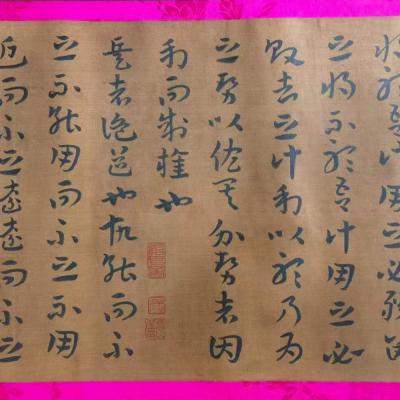 將聽吾計用之必勝留
之將不聽吾計用之必
敗去之計利以聽乃為
之勢以佐其外勢者因
利而制權也
兵者詭道也故能而示
之不能用而示之不用
近而示之遠遠而示之